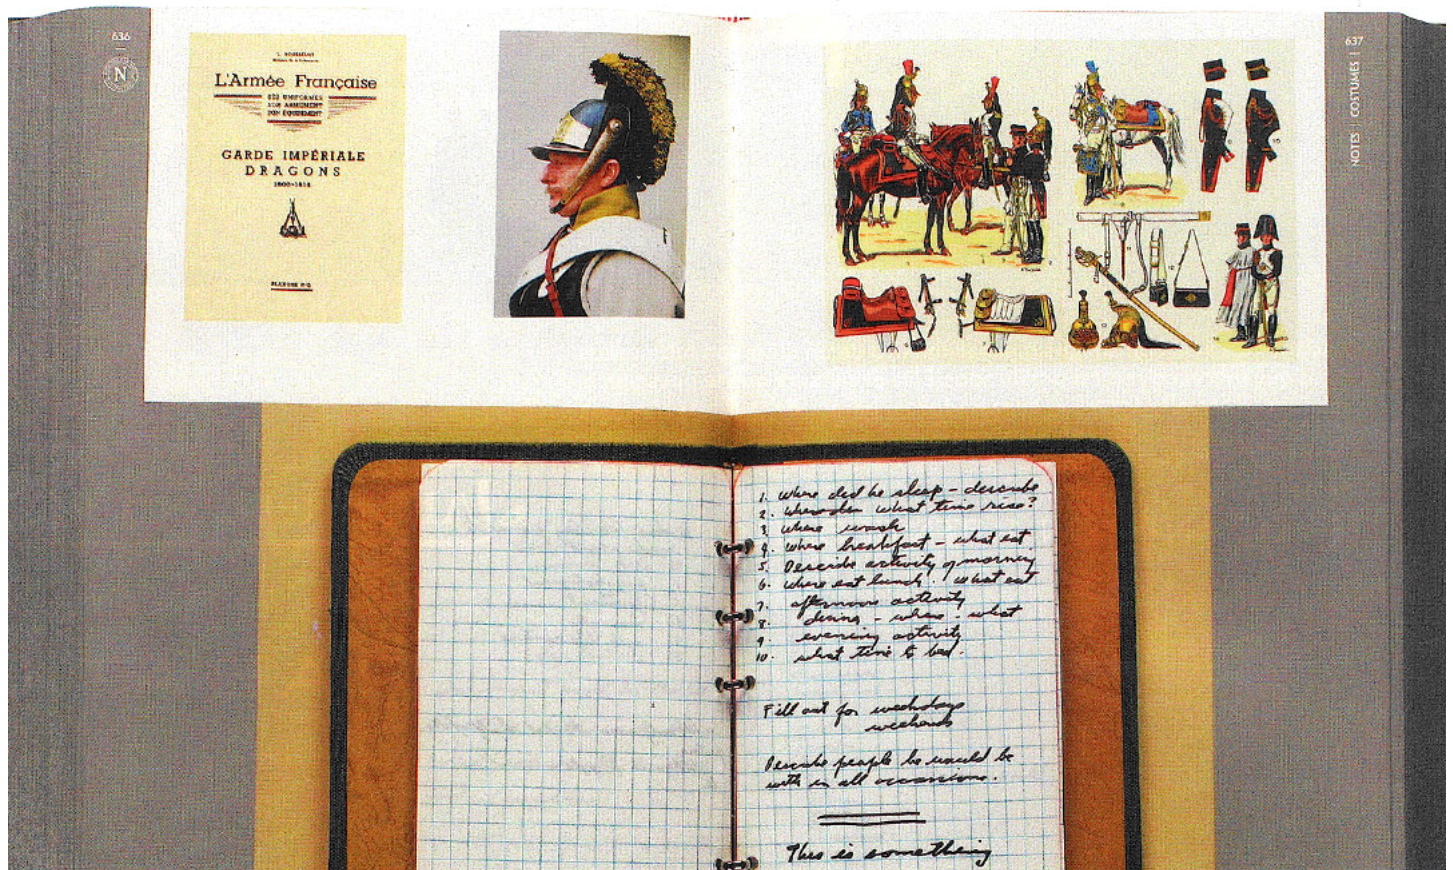 636
N
L'Armée Française
SES UNIFORMES
SON ARMEMENT
SON ÉQUIPEMENT
GARDE IMPÉRIALE
DRAGONS
PLANCHE Nº
637
NOTES COSTUMES
1. Where did he sleep – describe
2. what time rise?
3. where wash
4. where breakfast – what eat
5. Describe activity of morning
6. where eat lunch. What eat
7. afternoon activity
8. dining – where – what
9. evening activity
10. what time to bed.
Fill out for weekdays
weekends
Describe people he would be
with in all occasions.
This is something